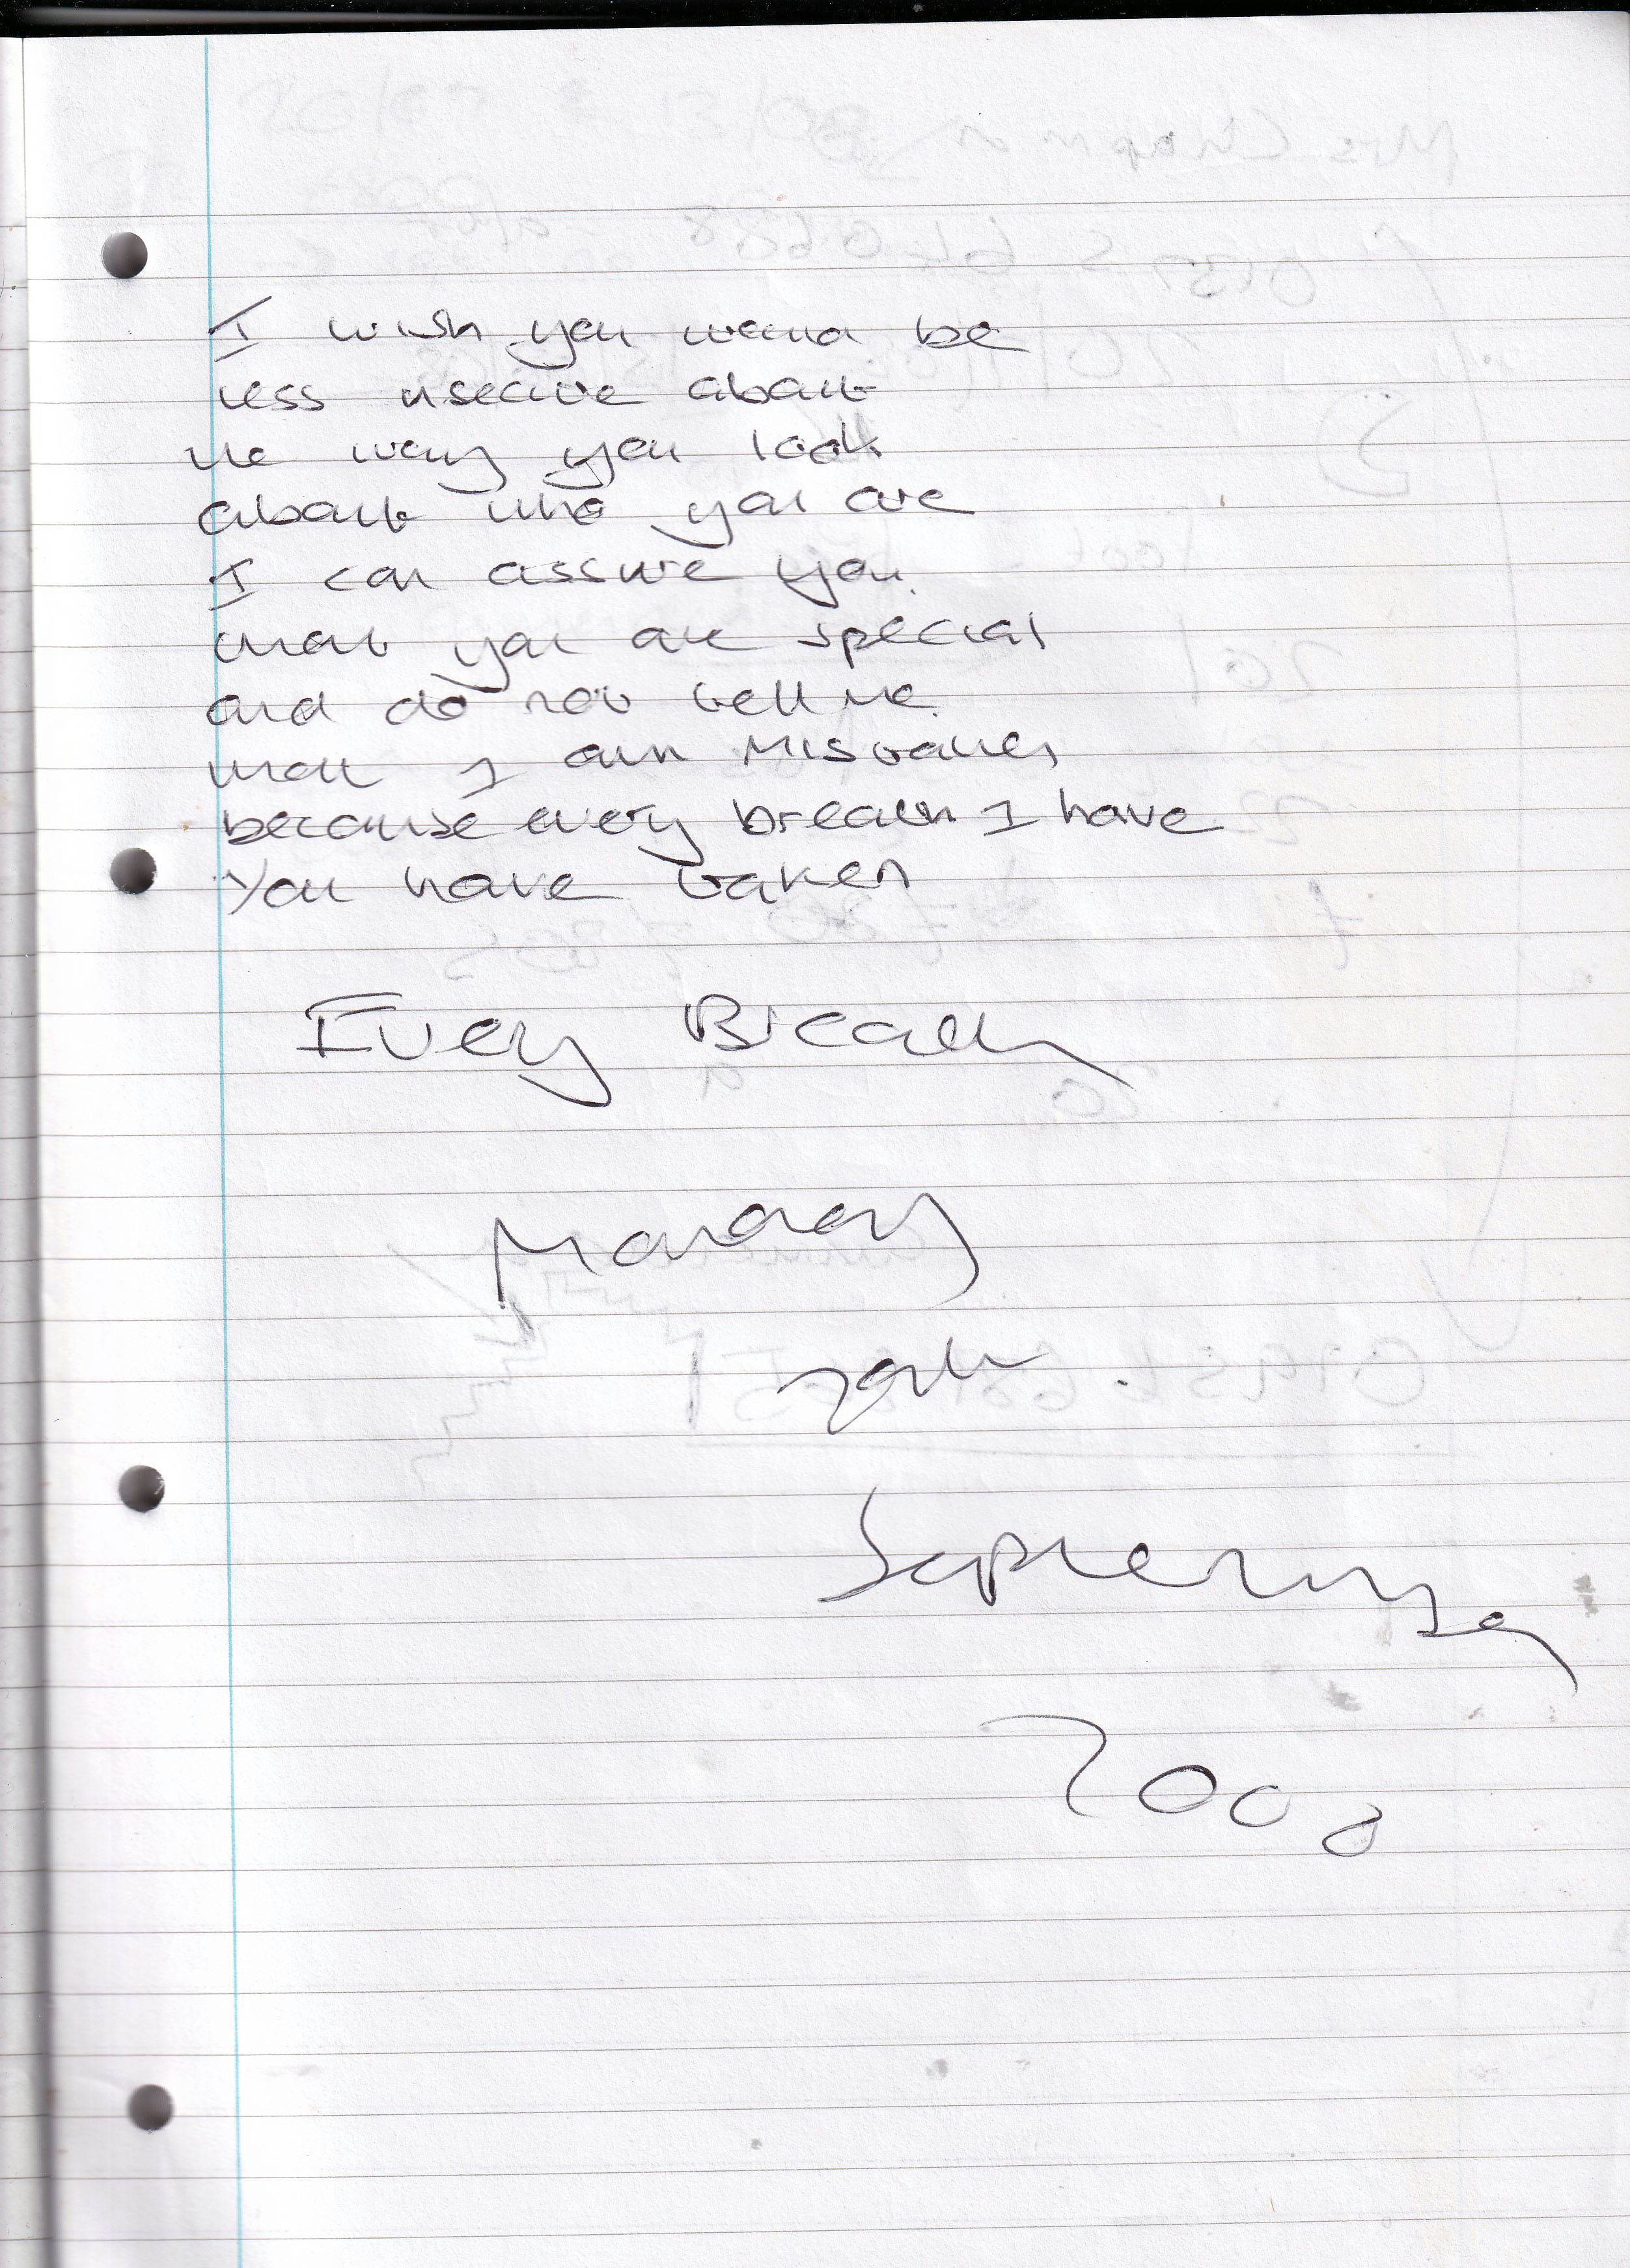 I wish you wanna be
less insecure about
the way you look
about who you are
I can assure you
that you are special
and do not tell me
that I am mistaken
because every breath I have
You have taken
Every Breath
Monday
29th
September
2008